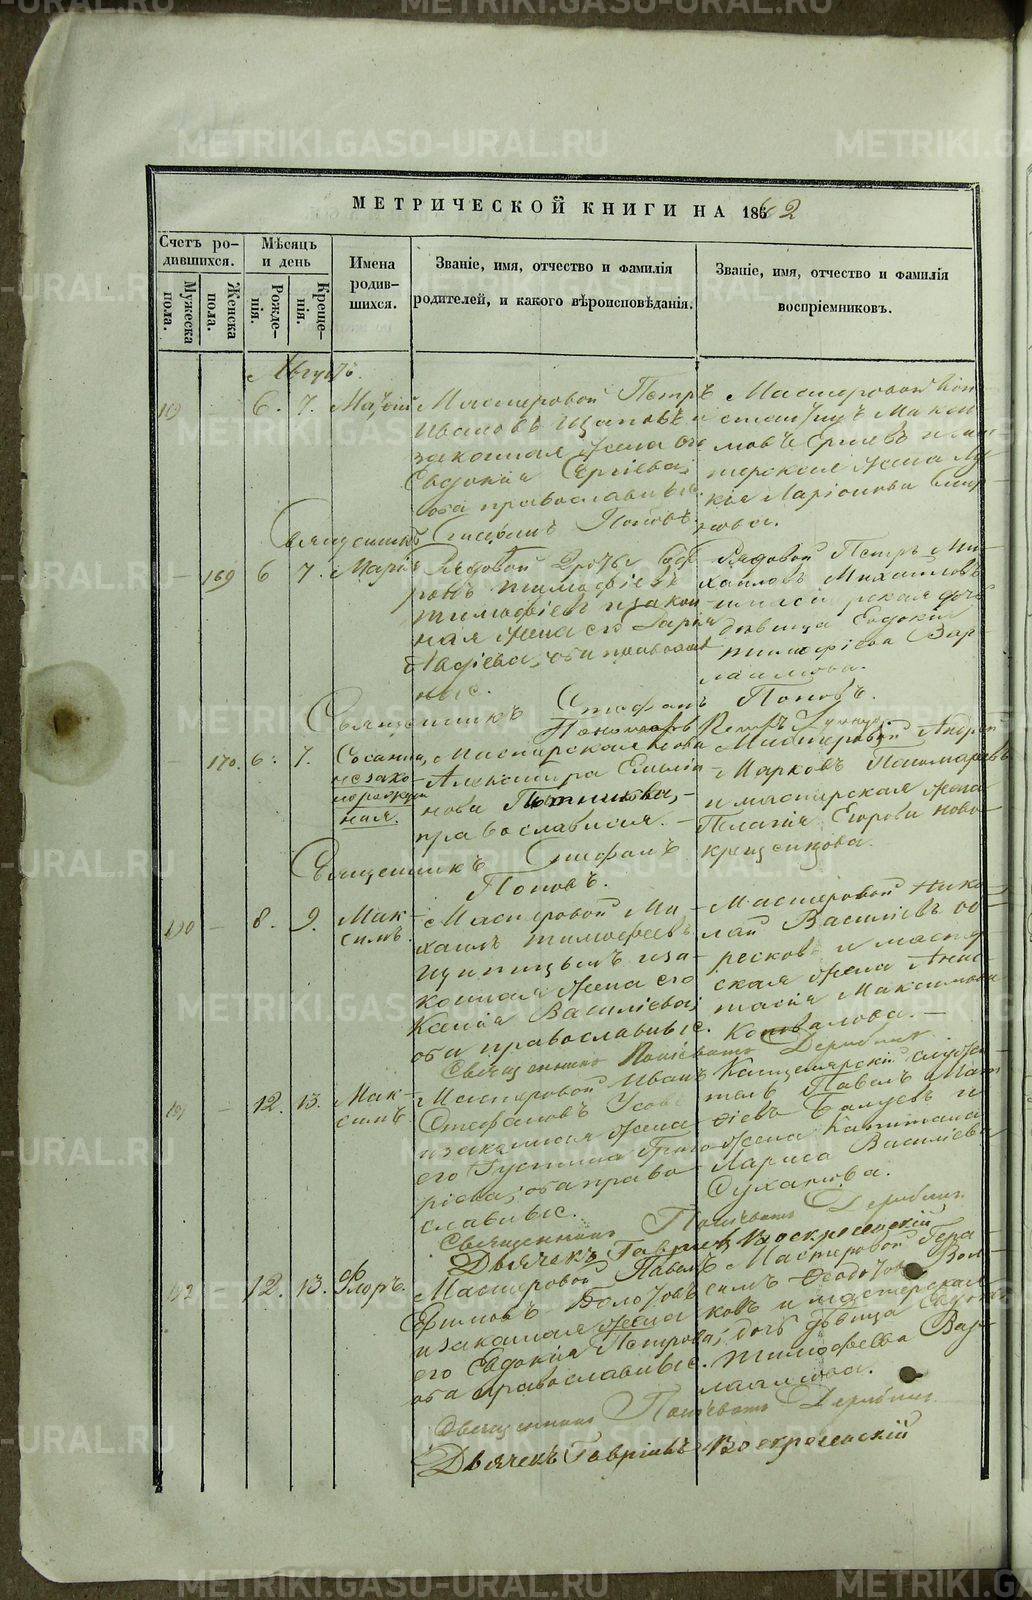 МЕТРИЧЕСКОЙ КНИГИ НА 1862
Счетъ ро-
дившихся.
Мужеска
пола.
Женска
пола.
Мѣсяцъ
и день
Рожде-
нія.
Креще-
нія.
Имена
родив-
шихся.
Званіе, имя, отчество и фамилія
родителей, и какого вѣроисповѣданія.
Званіе, имя, отчество и фамилія
воспріемниковъ.
Августъ
6. 7.
Мастеровой Петръ
Ивановъ и
законная жена его
Евдокія Сергіева,
оба православные.
Мастеровой Кон-
стантинъ Макси-
мовъ и мас-
терская жена Лу-
кія Ларіонова
Священникъ Стефанъ Поповъ.
169 6 7. Марія
Рядовой
Тимофіевъ и закон-
ная жена его Дарья
оба православ-
ные.
Рядовой Петръ Ми-
хайловъ Михайловъ
дочь
дѣвица Евдокія
Тимофіева Вар-
лакова.
Священникъ Стефанъ Поповъ.
Пономарь Петръ
170. 6. 7. Сосанна,
незако-
норожден-
ная.
Мастерская
Александра Емелія-
нова Плотникова,
православная.
Мастеровой Андрей
Марковъ Пономаревъ
и мастерская жена
Пелагія Егорова Ново-
крещенова.
Священникъ Стефанъ
Поповъ.
190 8. 9. Мак-
симъ.
Мастеровой Ми-
хаилъ Тимофеевъ
Щипицынъ и за-
конная жена его
Ксенія Василіева,
оба православные.
Мастеровой Нико-
лай Василіевъ
и масте-
рская жена Анас-
тасія Максимова
Коновалова.
Священникъ Дерябинъ
191 12. 13. Мак-
симъ
Мастеровой Иванъ
Стефановъ
и законная жена
его Густина Григо-
ріева, оба право-
славные.
Канцелярскій служи-
тель Павелъ Мат-
ѳіевъ и
жена Капитана
Лариса Василіева
Суханова.
Священникъ Дерябинъ
Дьячекъ Гавріилъ Воскресенскій
192 12. 13. Флоръ.
Мастеровой Павелъ
Ефимовъ Болотовъ
и законная жена
его Евдокія Петрова,
оба православные.
Мастеровой Гера-
симъ Ѳеодотовъ Вол-
ковъ и мастерская
дочь дѣвица Евдокія
Тимофеева Вар-
лакова.
Священникъ Дерябинъ
Дьячекъ Гавріилъ Воскресенскій
METRIKI.GASO-URAL.RU